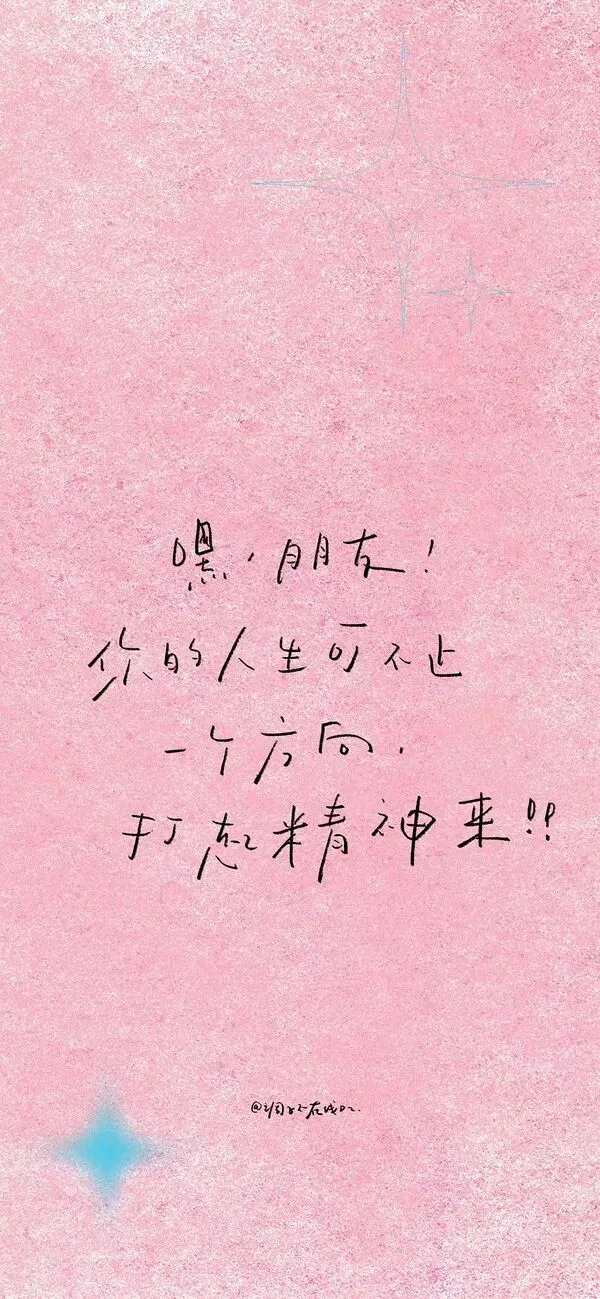 嘿,朋友!
你的人生可不止
一个方向,
打起精神来!!